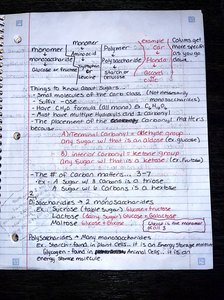 monomer
monomer → Amino acid → Polymer
example
Car
Florida
Accord
Civic
Column get
more specific
as you go
down.
monosaccharide
Glucose or fructose
Starch or
Things to know About Sugars...
- Small molecules of the carb class (Not necessarily
- Suffix -ose monosaccharides)
- Have CH₂O formula (all mono) ex C₆H₁₂O₆
- Must have multiple Hydroxyls and 1 Carbonyl
- The placement of the Carbonyl matters
because...
A) Terminal Carbonyl = aldehyde group
Any Sugar with that is an aldose (ex. glucose)
B) Interior Carbonyl = ketone group
Any Sugar w/ that is a ketose (ex. fructose)
- The # of Carbon matters... 3-7
ex. A Sugar w/ 3 Carbons is a triose
A Sugar w/ 6 Carbons is a hextose
Disaccharides → 2 monosaccharides
Ex. Sucrose (table sugar) Glucose + fructose
Lactose (dairy Sugar) Glucose + Galactose
Maltose Glucose + Glucose
Glucose is the monomer
in all 3
Polysaccharides → Many monosaccharides
Ex. Starch - found in Plant cells... it is an Energy Storage molecule
Glycogen - found in Animal Cells... it is an
energy storage molecule